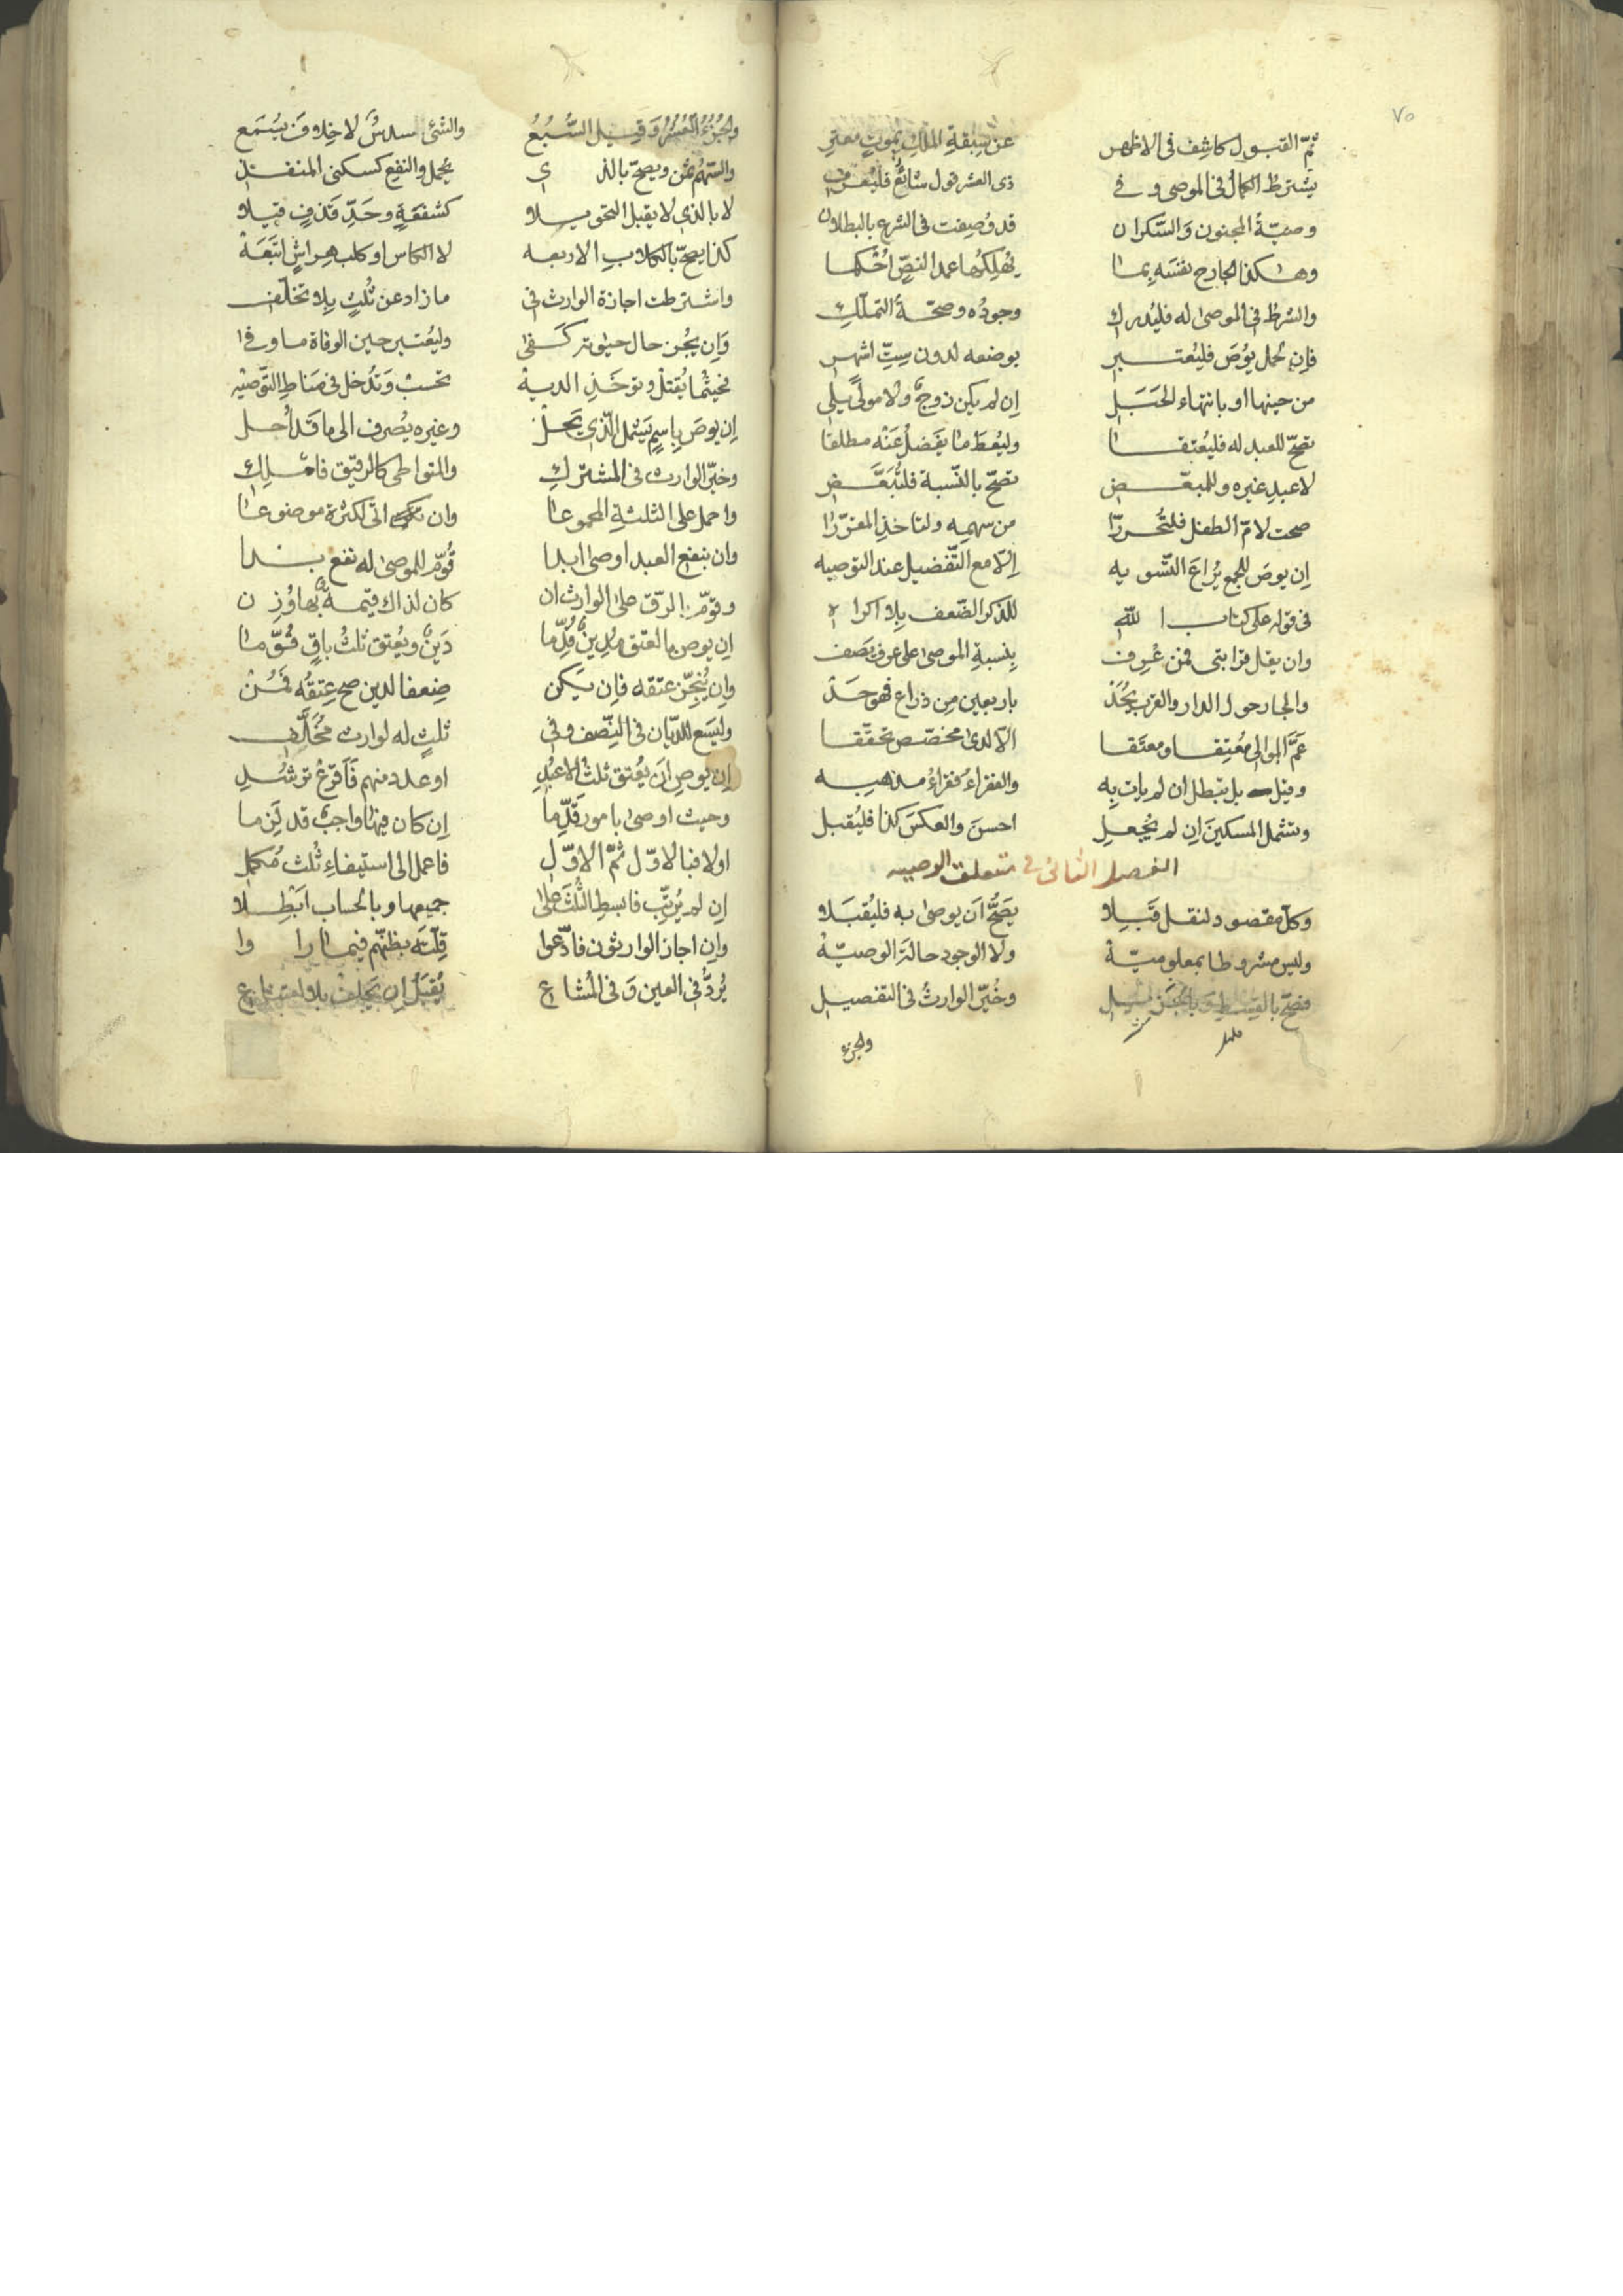 ٧٥
ثمّ القبول كاشف فى الاظهر عن سبقة الملك بموت معتبر
يشترط الكمال فى الموصى وفے ذى العشر قول شائع فليعرف
وصيّة المجنون والسّكران قد وصفت فى الشرع بالبطلان
وهكذا الجارح نفسه بما يهلكها عمدا لنصّ احكما
والشرط فى الموصى له فليدرك وجوده وصحّة التملّك
فإن لحمل يوص فليعتبر بوضعه لدون ستّ اشهر
من حينها او بانتهاء الحبل إن لم يكن زوج ولا مولى يلى
تصحّ للعبد له فليعتقا وليعط ما يفضل عنه مطلقا
لا عبد غيره وللمبعّض تصحّ بالنّسبة فلتبعّض
صحت لامّ الطفل فلتحررا من سهمه ولتاخذ المقرّرا
إن يوص للجمع يراع التّسويه إلّا مع التّفضيل عند التوصيه
فى قوله على كتاب الله للذكر الضّعف بلا اكراه
وان يقل قرابتى فمن عرف بنسبة الموصى على عرف يصف
والجار حول الدار والعرب يحد باربعين من ذراع فهو حد
عمّ الموالى معتقا ومعتقا الّا لدى مخصّص تحقّقا
وقيل بل تبطل ان لم يات به والفقراء فقراء مذهبه
وتشمل المسكين إن لم يجعل احسن والعكس كذا فليقبل
الفصل الثانى فے متعلق الوصيه
وكلّ مقصود لنقل قبلا يصحّ أن يوصى به فليقبلا
وليس مشروطا بمعلوميّة ولا الوجود حالة الوصيّة
فصحّ بالقسط وبالجزيل وخيّر الوارث فى التفصيل
والجزء
والجزء العشر وقيل السّبع والشئ سدس لا خلاف يسمع
والسّهم ثمن ويصحّ بالذى يجهل والنفع كسكنى المنفذ
لا بالذى لا يقبل التحويلا كشفعة وحدّ قذف قيلا
كذا يصحّ بالكلاب الاربعه لا الكاس او كلب هراش اتبعه
واشترطت اجازة الوارث فى ما زاد عن ثلث بلا تخلّف
وإن يجز حال حيوته كفى وليعتبر حين الوفاة ما وفے
فحيثما يقتل وتوخذ الدية تحسب وتدخل فى مناط التّوصيه
إن يوص باسم يشمل الّذى يحل وغيره يصرف الى ما قد أحل
وخيّر الوارث فى المشترك والمتواطى كالرقيق فاملك
واحمل على الثلثة المجموعا وان اتى لكثرة موضوعا
وان بنفع العبد اوصى ابدا قوّم للموصى له نفع بدا
وقوّم الرّق على الوارث ان كان لذاك قيمة بها وزن
إن يوص بالعتق مدين قدّما دين ويعتق ثلث باق قوّما
وإن ينجّز عتقه فإن يكن ضعفا لدين صح عتقه فمن
وليسع للدّيان فى النّصف وفى ثلث له لوارث مخلّف
إن يوص ان يعتق ثلث الاعبد او عدد منهم فأقرع ترشد
وحيث اوصى بامور قدّما إن كان فيها واجب قد لزما
اولا فبالاوّل ثمّ الاوّل فاعمل الى استيفاء ثلث مكمل
إن لم يرتّب فابسط الثّلث على جميعها وبالحساب ابطلا
وإن اجاز الوارثون فادّعوا قلّته بظنّهم فيما راوا
يردّ فى العين وفى المشاع يقبل ان يحلف بلا امتناع